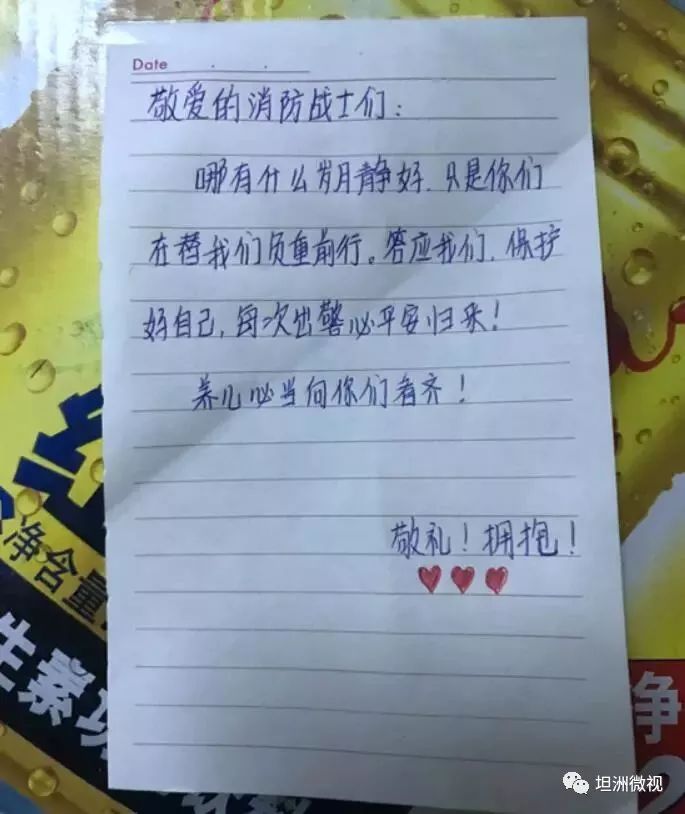 Date
敬爱的消防战士们：
哪有什么岁月静好，只是你们
在替我们负重前行。答应我们，保护
好自己，每次出警必平安归来！
养儿必当向你们看齐！
敬礼！拥抱！
净含量
生素
净
2
坦洲微视